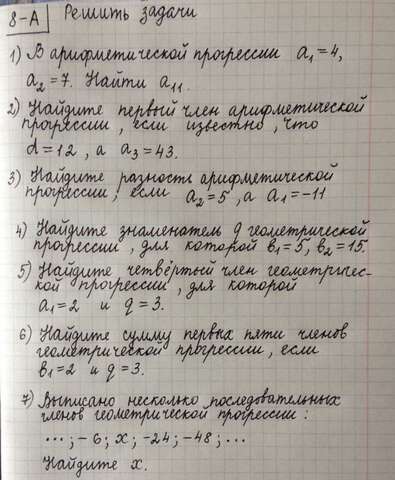 8-А Решить задачи
1) В арифметической прогрессии a₁=4,
a₂=7. Найти a₁₁.
2) Найдите первый член арифметической
прогрессии, если известно, что
d=12, а a₃=43.
3) Найдите разность арифметической
прогрессии, если a₂=5, а a₁=-11
4) Найдите знаменатель q геометрической
прогрессии, для которой в₁=5; в₂=15.
5) Найдите четвёртый член геометричес-
кой прогрессии, для которой
a₁=2 и q=3.
6) Найдите сумму первых пяти членов
геометрической прогрессии, если
в₁=2 и q=3.
7) Выписано несколько последовательных
членов геометрической прогрессии:
...; -6; x; -24; -48; ...
Найдите x.